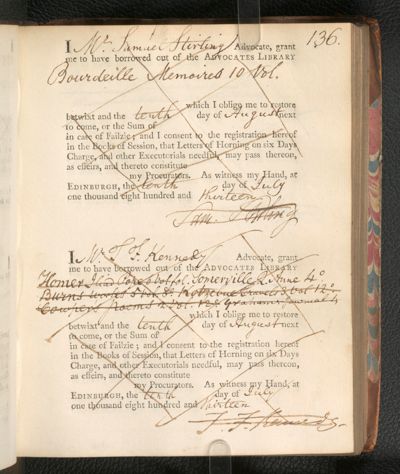 136.
I Mr. Samuel Stirling Advocate, grant
me to have borrowed out of the ADVOCATES LIBRARY
Bourdeille Memoires 10 Vol.
which I oblige me to restore
betwixt and the tenth day of August next
to come, or the Sum of
in case of Failzie; and I consent to the registration hereof
in the Books of Session, that Letters of Horning on six Days
Charge, and other Executorials needful, may pass thereon,
as effeirs, and thereto constitute
my Procurators. As witness my Hand, at
EDINBURGH, the tenth day of July
one thousand eight hundred and thirteen
Sam. Stirling
I Mr. T F. Kennedy Advocate, grant
me to have borrowed out of the ADVOCATES LIBRARY
Homer Iliad Pope Vol fol. Somerville Q. Anne 4o
Burns Works
Cowper's Poems 2 vol. 12o Grahame's
which I oblige me to restore
betwixt and the tenth day of August next
to come, or the Sum of
in case of Failzie; and I consent to the registration hereof
in the Books of Session, that Letters of Horning on six Days
Charge, and other Executorials needful, may pass thereon,
as effeirs, and thereto constitute
my Procurators. As witness my Hand, at
EDINBURGH, the tenth day of July
one thousand eight hundred and thirteen
T. F. Kennedy